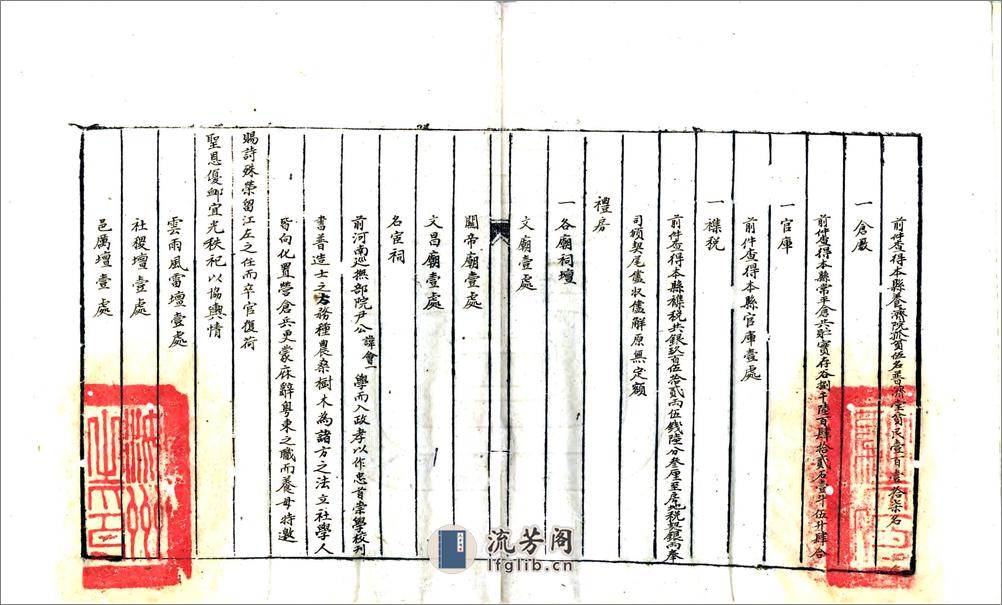 前件查得本縣養濟院孤貧伍名普濟堂貧民壹百壹拾柒名
一倉廒
前件查得本縣常平倉共貯實存谷捌千陸百肆拾貳石壹斗伍升肆合
一官庫
前件查得本縣官庫壹處
一襍稅
前件查得本縣襍稅共銀玖百伍拾貳兩伍錢陸分叄厘至房地稅契銀兩奉
司頒契尾儘收儘解原無定額
禮房
一各廟祠壇
文廟壹處
關帝廟壹處
文昌廟壹處
名宦祠
前河南巡撫部院尹公諱會一學而入政孝以作忠首崇學校刊
書普造士之方務種農桑樹木為諸方之法立社學人
皆向化置營倉兵更蒙麻辭粵東之職而養母特邀
賜詩殊榮留江左之任而卒官復荷
聖恩優卹宜光秩祀以協輿情
雲雨風雷壇壹處
社稷壇壹處
邑厲壇壹處
流芳阁
lfglib.cn